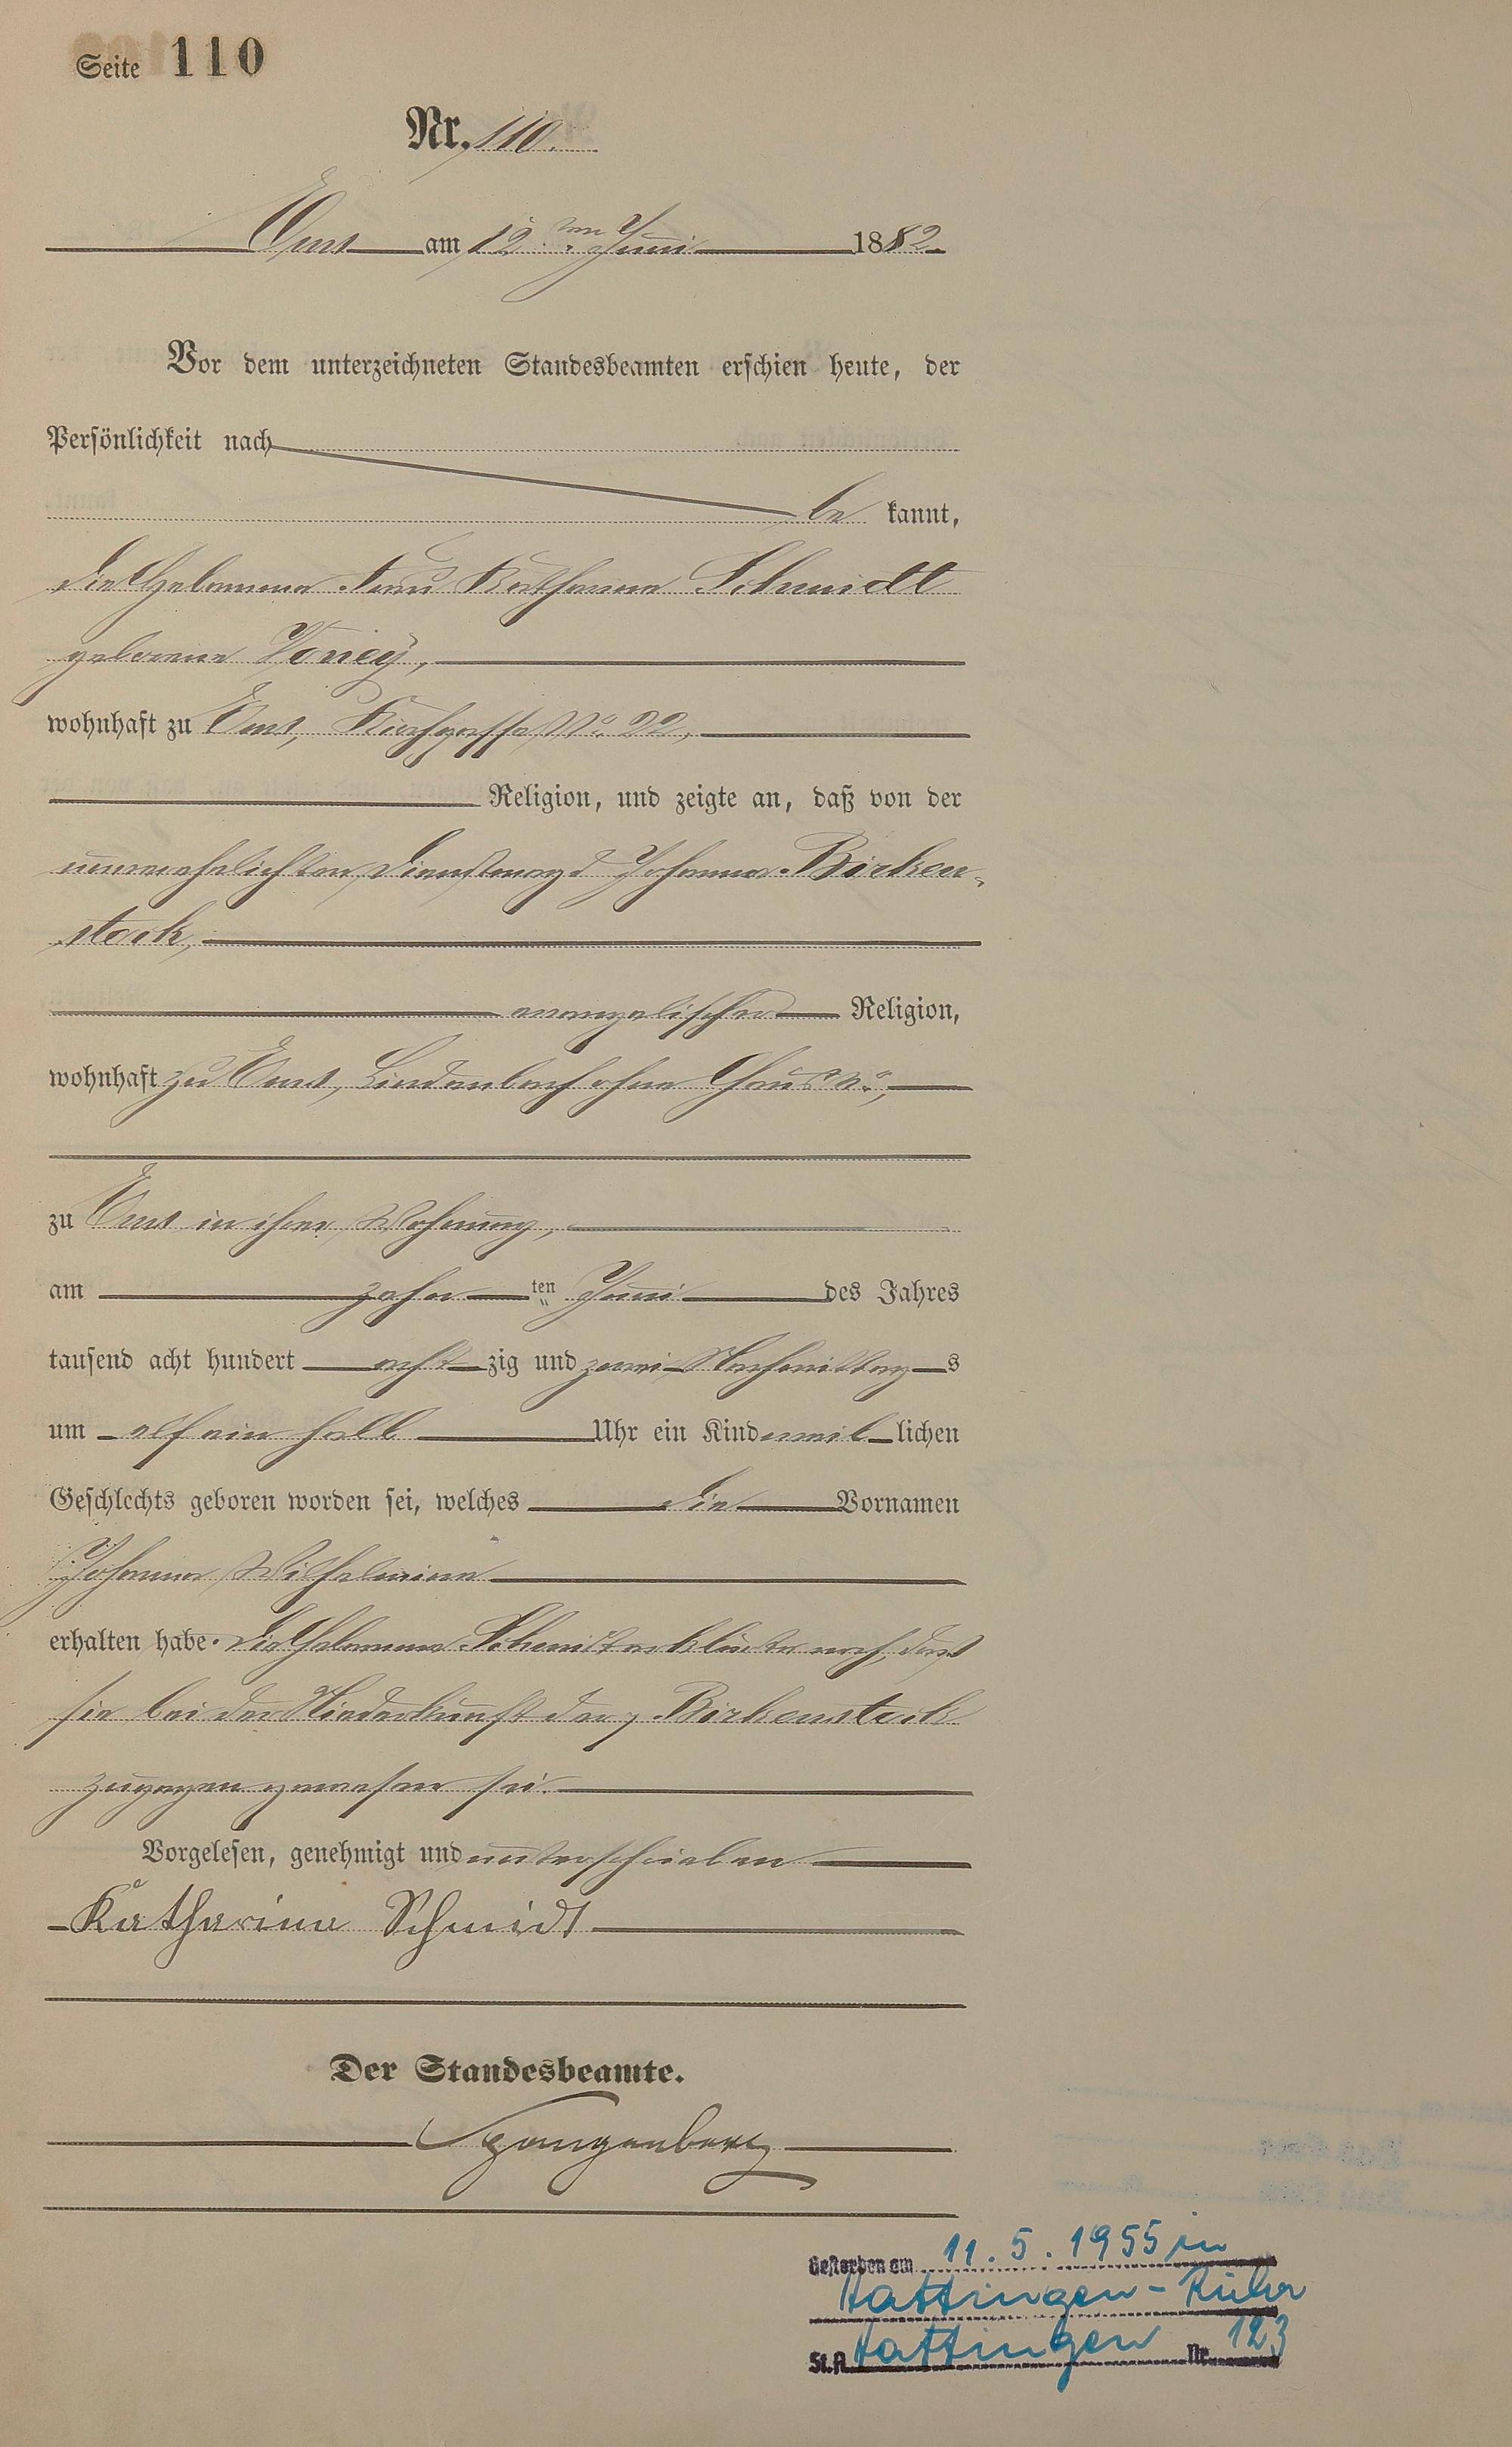 Seite 110
Nr. 110.
Ems am 12ten Juni 1882.
Vor dem unterzeichneten Standesbeamten erschien heute, der
Persönlichkeit nach
be kannt,
die Hebamme Frau Katharina Schmidt
geborene Voney,
wohnhaft zu Ems, Kirchgasse No. 22,
Religion, und zeigte an, daß von der
unverehelichten Dienstmagd Johanna Birken-
stock,
evangelischer Religion,
wohnhaft zu Ems, Lindenbach ohne Haus No.,
zu Ems in ihrer Wohnung,
am zehnten Juni des Jahres
tausend acht hundert achtzig und zwei Nachmittags
um elf ein halb Uhr ein Kind weiblichen
Geschlechts geboren worden sei, welches die Vornamen
Johanna Wilhelmine
erhalten habe. Die Hebamme Schmidt erklärte noch, daß
sie bei der Niederkunft der Birkenstock
zugegen gewesen sei.
Vorgelesen, genehmigt und unterschrieben
Katharina Schmidt
Der Standesbeamte.
Spangenberg
Gestorben am 11.5.1955 in
Hattingen-Ruhr
St.A. Hattingen Nr. 123